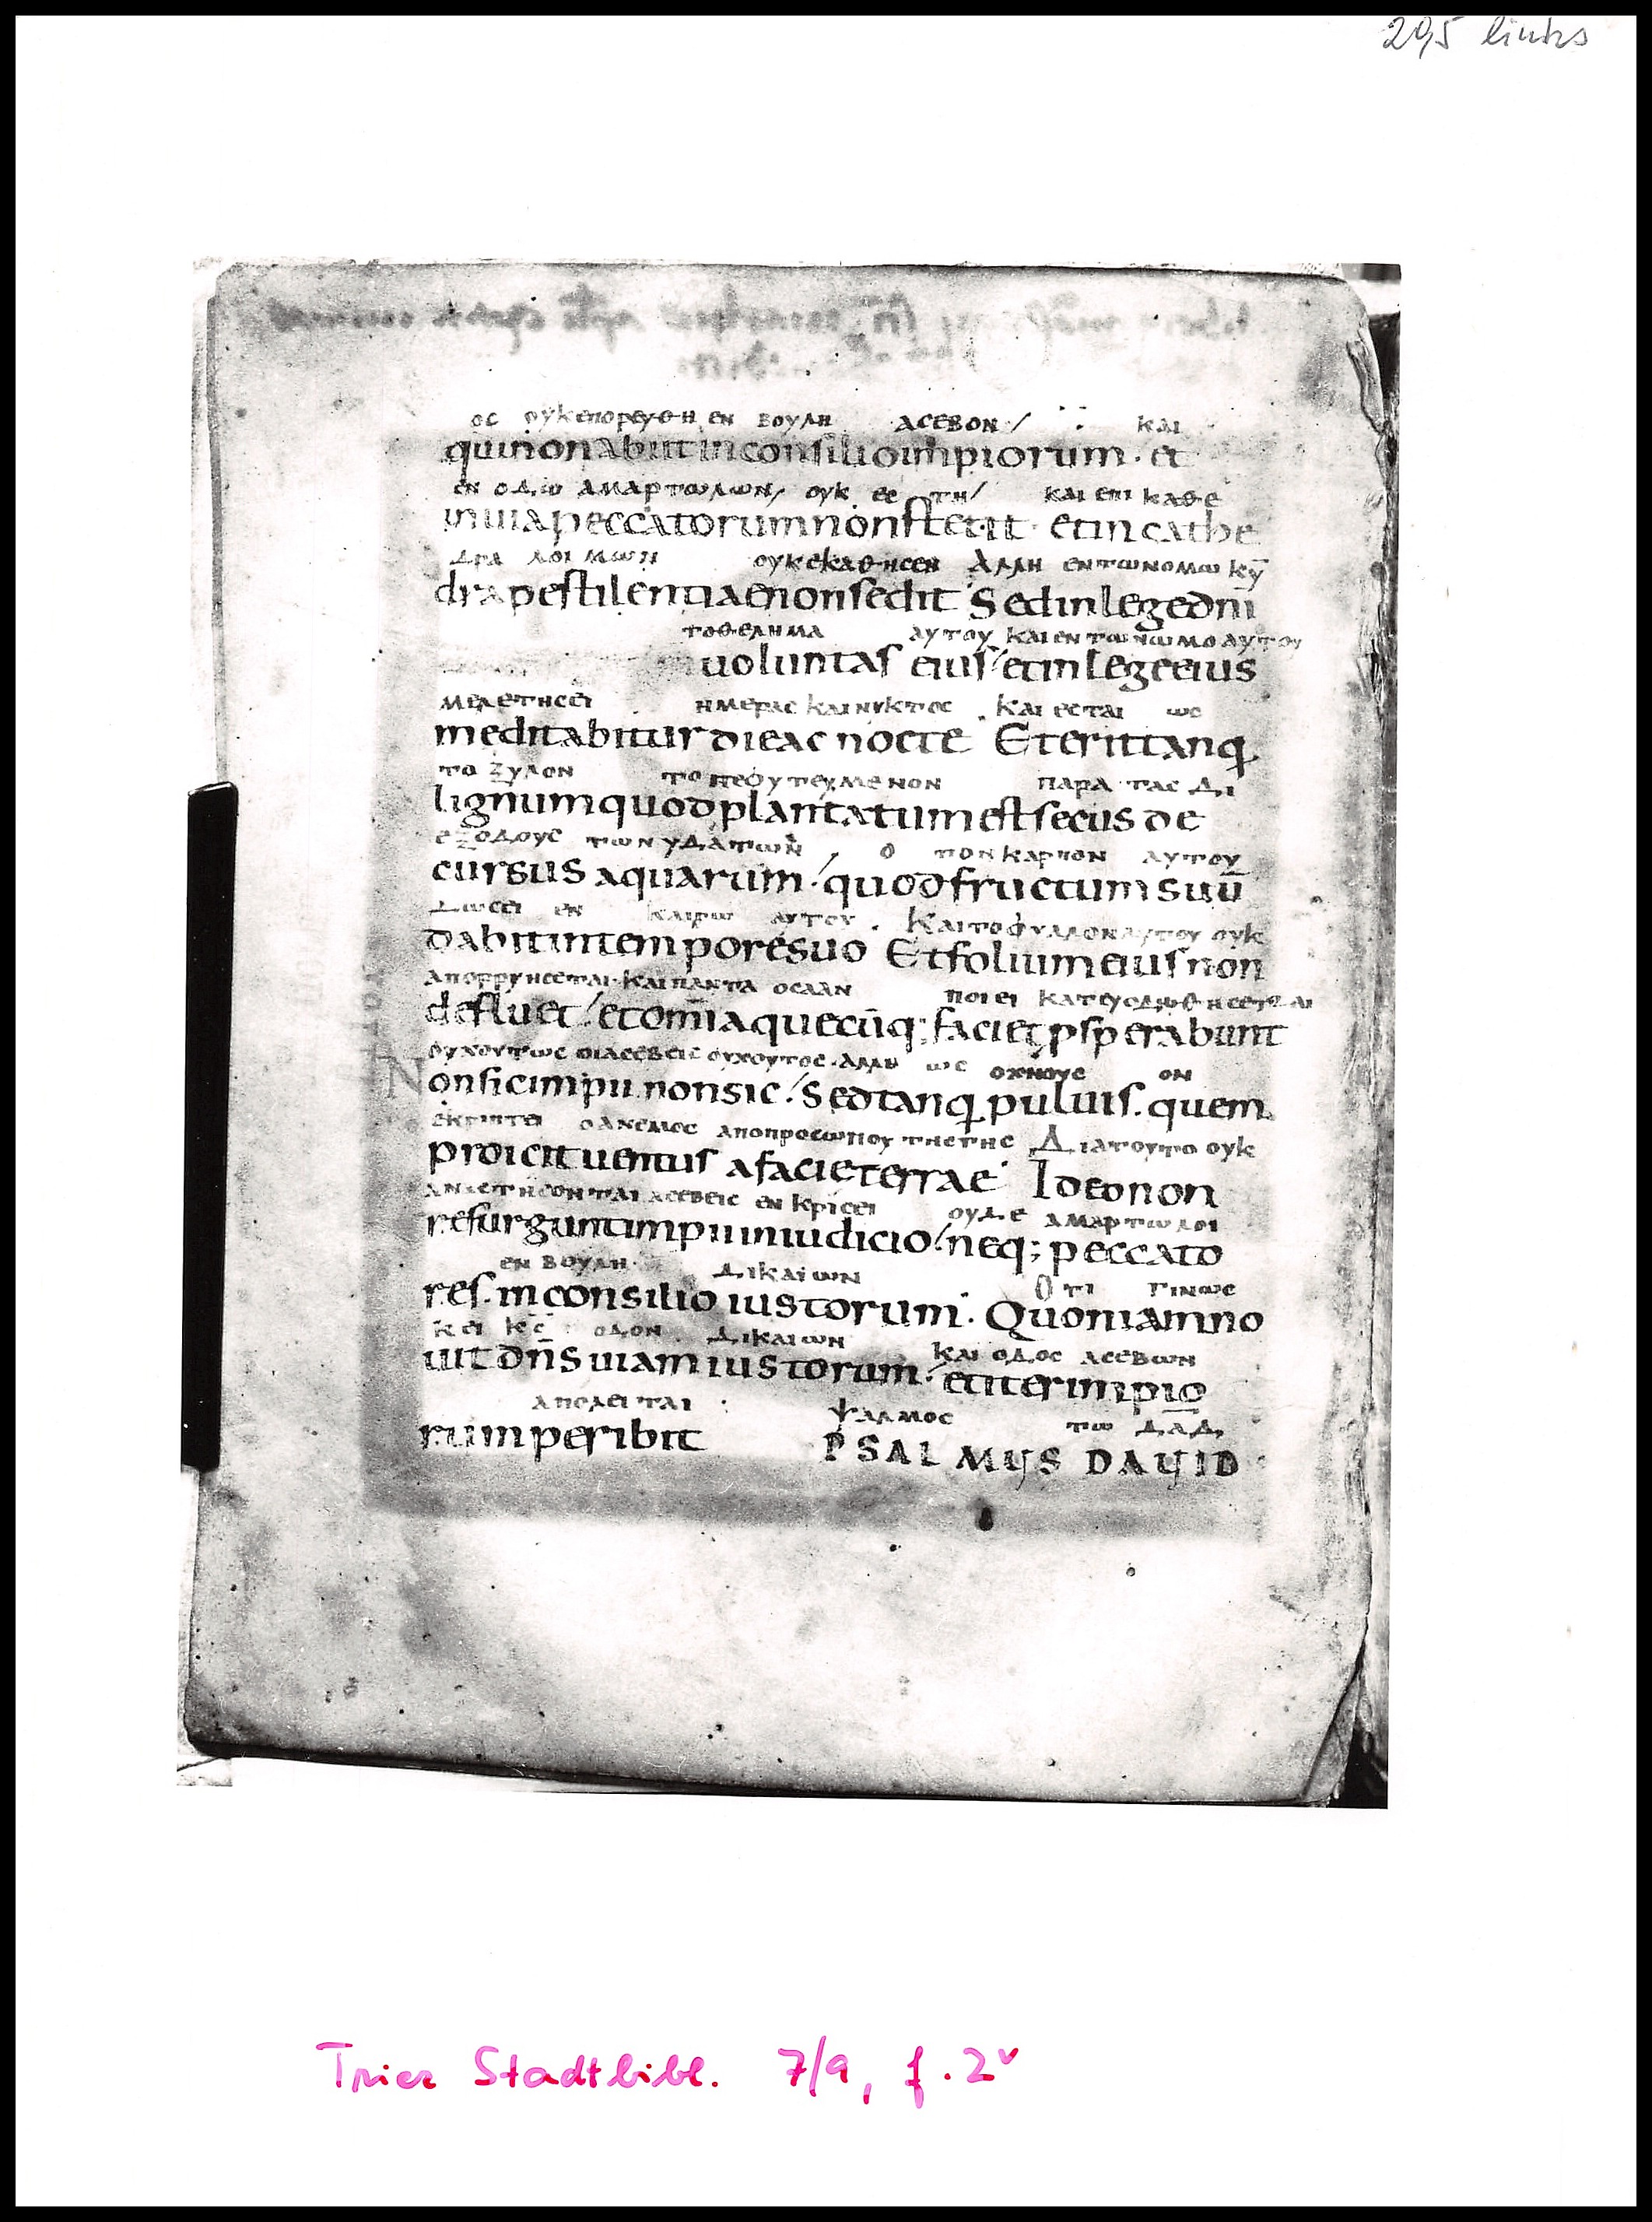 295 links
ΟС ΟΥΚΕΠΟΡΕΥΘΗ ΕΝ ΒΟΥΛΗ ΑСΕΒΟΝ / ΚΑΙ
qui non abiit in consilio impiorum · et
ΕΝ ΟΔΩ ΑΜΑΡΤΩΛΩΝ / ΟΥΚ ΕС ΤΗ / ΚΑΙ ΕΠΙ ΚΑΘΕ
in uia peccatorum non stetit · et in cathe
ΔΡΑ ΛΟΙΜΩΝ ΟΥΚΕΚΑΘΗСΕΝ ΑΛΛΗ ΕΝΤΩΝΟΜΩ ΚΥ̅
dra pestilentiae non sedit Sed in lege dn̅i
ΤΟΘΕΛΗΜΑ ΑΥΤΟΥ ΚΑΙ ΕΝ ΤΩ ΝΩΜΟ ΑΥΤΟΥ
uoluntas eius / et in lege eius
ΜΕΛΕΤΗСΕΙ ΗΜΕΡΑС ΚΑΙ ΝΥΚΤΟС . ΚΑΙ ΕСΤΑΙ ΩС
meditabitur die ac nocte Et erit tanq
ΤΟ ΞΥΛΟΝ ΤΟ ΠΕΦΥΤΕΥΜΕΝΟΝ ΠΑΡΑ ΤΑС ΔΙ
lignum quod plantatum est secus de
ΕΞΟΔΟΥС ΤΩΝ ΥΔΑΤΩΝ . Ο ΤΟΝ ΚΑΡΠΟΝ ΑΥΤΟΥ
cursus aquarum · / quod fructum suu̅
ΔΩСΕΙ ΕΝ ΚΑΙΡΩ ΑΥΤΟΥ . ΚΑΙ ΤΟ ΦΥΛΛΟΝ ΑΥΤΟΥ ΟΥΚ
dabit in tempore suo Et folium eius non
ΑΠΟΡΡΥΗСΕΤΑΙ · ΚΑΙ ΠΑΝΤΑ ΟСΑΑΝ ΠΟΙΕΙ ΚΑΤΕΥΟΔΩΘΗСΕΤΑΙ
defluet / et om̅ia quecu̅q; faciet psperabunt
ΟΥΧΟΥΤΩС ΟΙΑСΕΒΕΙС ΟΥΧΟΥΤΟС · ΑΛΛΗ ΩС ΟΧΝΟΥС ΟΝ
Non sic impii non sic · / Sed tanq puluis . quem
ΕΚΡΙΠΤΕΙ ΟΑΝΕΜΟС ΑΠΟΠΡΟСΩΠΟΥ ΤΗСΓΗС ΔΙΑΤΟΥΤΟ ΟΥΚ
proicit uentus a facie terrae Ideo non
ΑΝΑСΤΗСΟΝΤΑΙ ΑСΕΒΕΙС ΕΝ ΚΡΙСΕΙ ΟΥΔΕ ΑΜΑΡΤΩΛΟΙ
resurgunt impii in iudicio · / neq; peccato
ΕΝ ΒΟΥΛΗ ΔΙΚΑΙΩΝ ΟΤΙ ΓΙΝΩС
res . in consilio iustorum · Quoniam no
ΚΕΙ ΚС̅ ΟΔΟΝ ΔΙΚΑΙΩΝ ΚΑΙ ΟΔΟС ΑСΕΒΩΝ
uit dn̅s uiam iustorum · / et iter impio
ΑΠΟΛΕΙΤΑΙ : ΨΑΛΜΟС ΤΩ ΔΑΔ
rum peribit PSALMUS DAUID
Trier Stadtbibl. 7/9, f. 2v